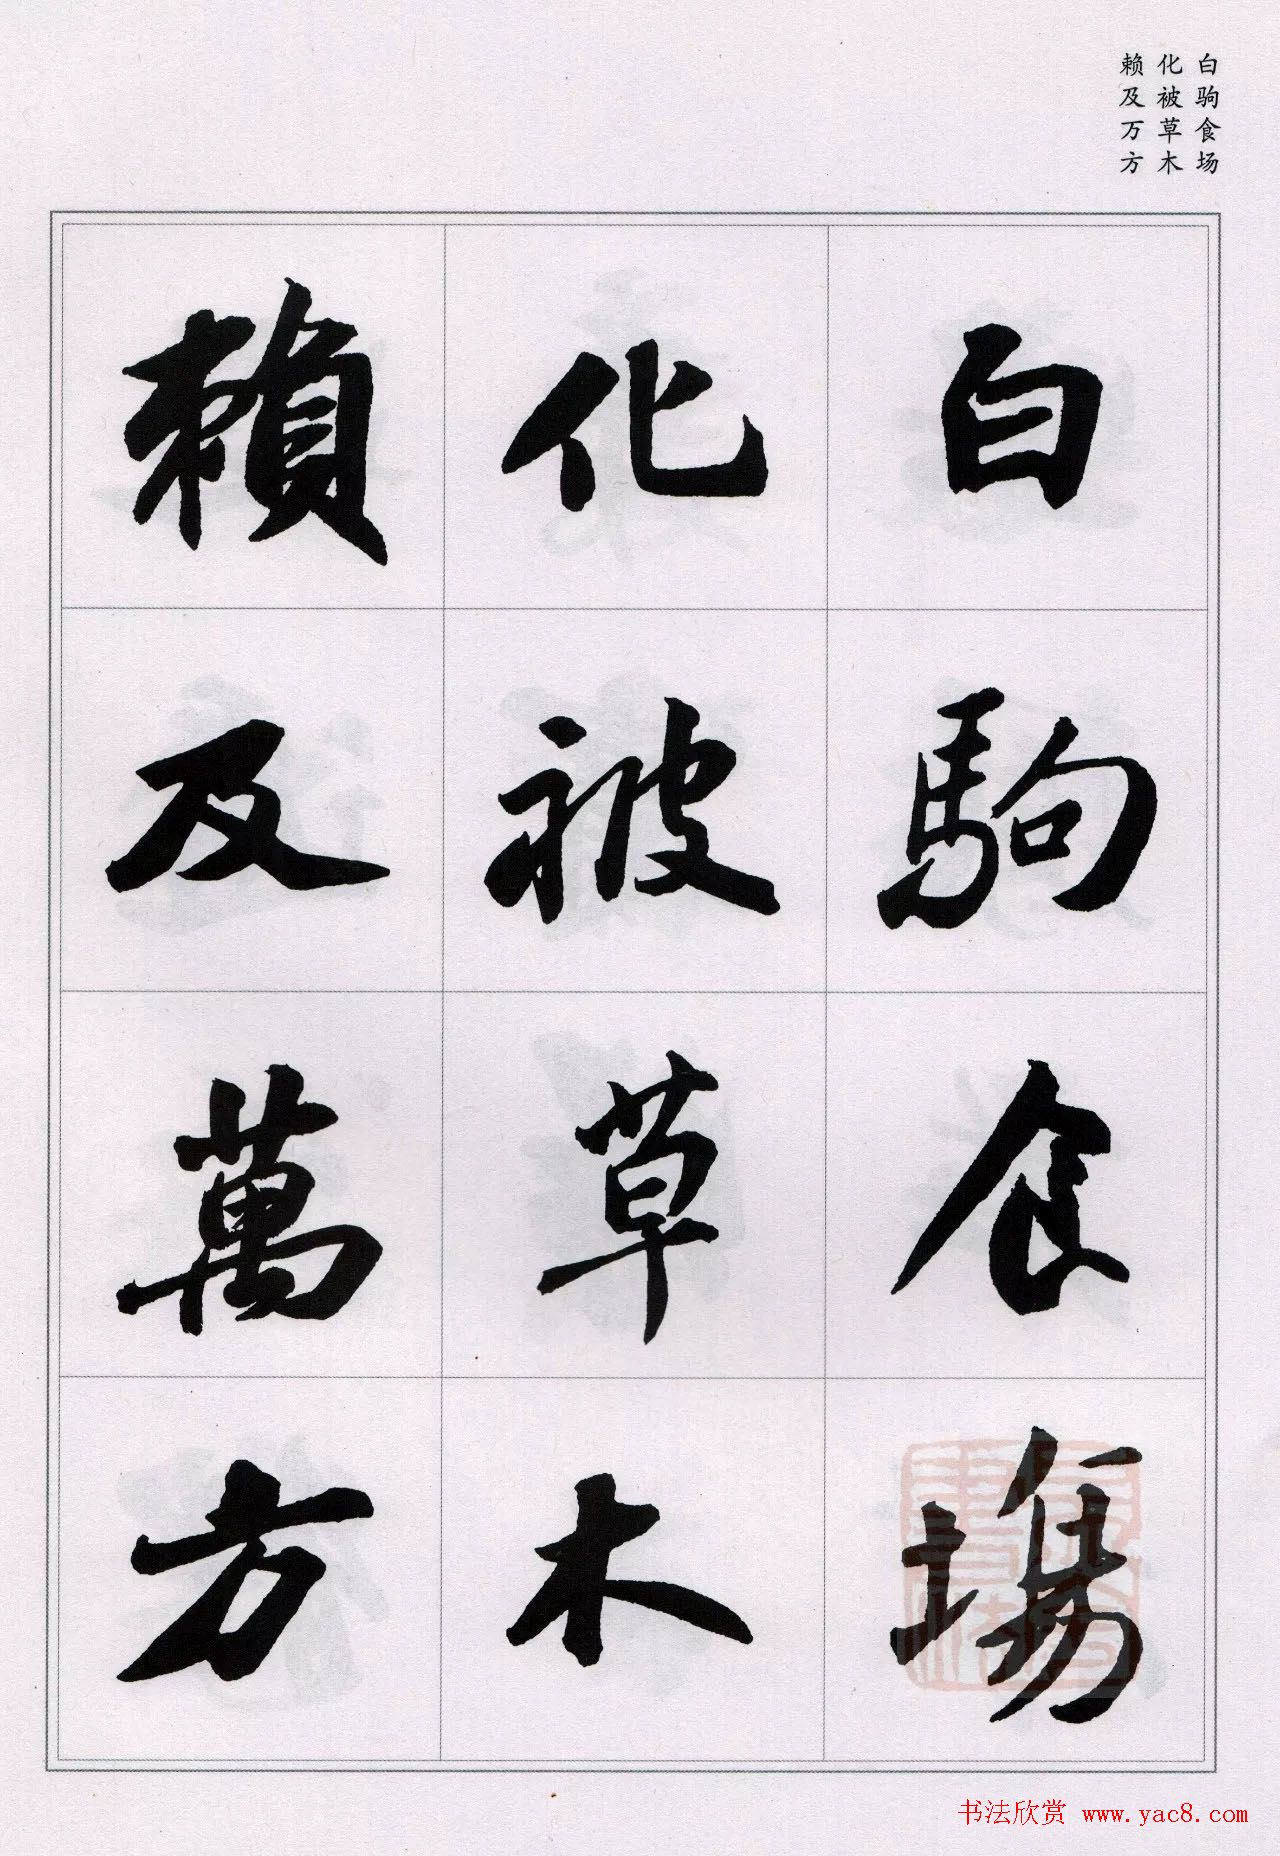 白驹食场
化被草木
赖及万方
白駒食場
化被草木
賴及萬方
书法欣赏 www.yac8.com